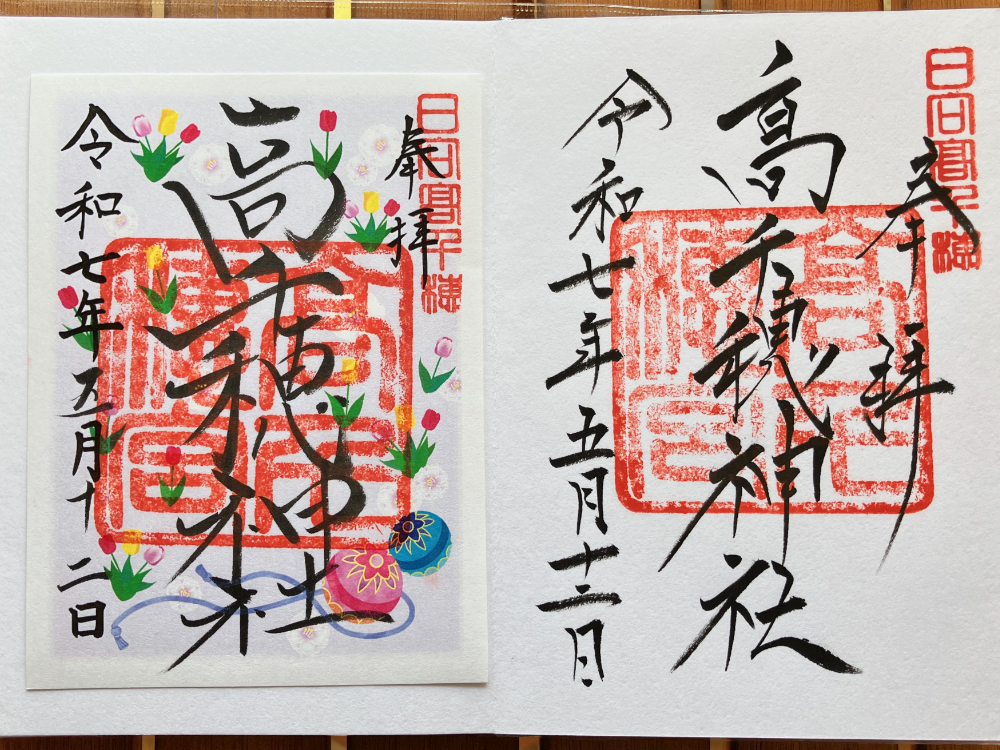 日向高千穂
奉拝
高千穂神社
令和七年五月十二日
日向高千穂
奉拝
高千穂神社
令和七年五月十二日